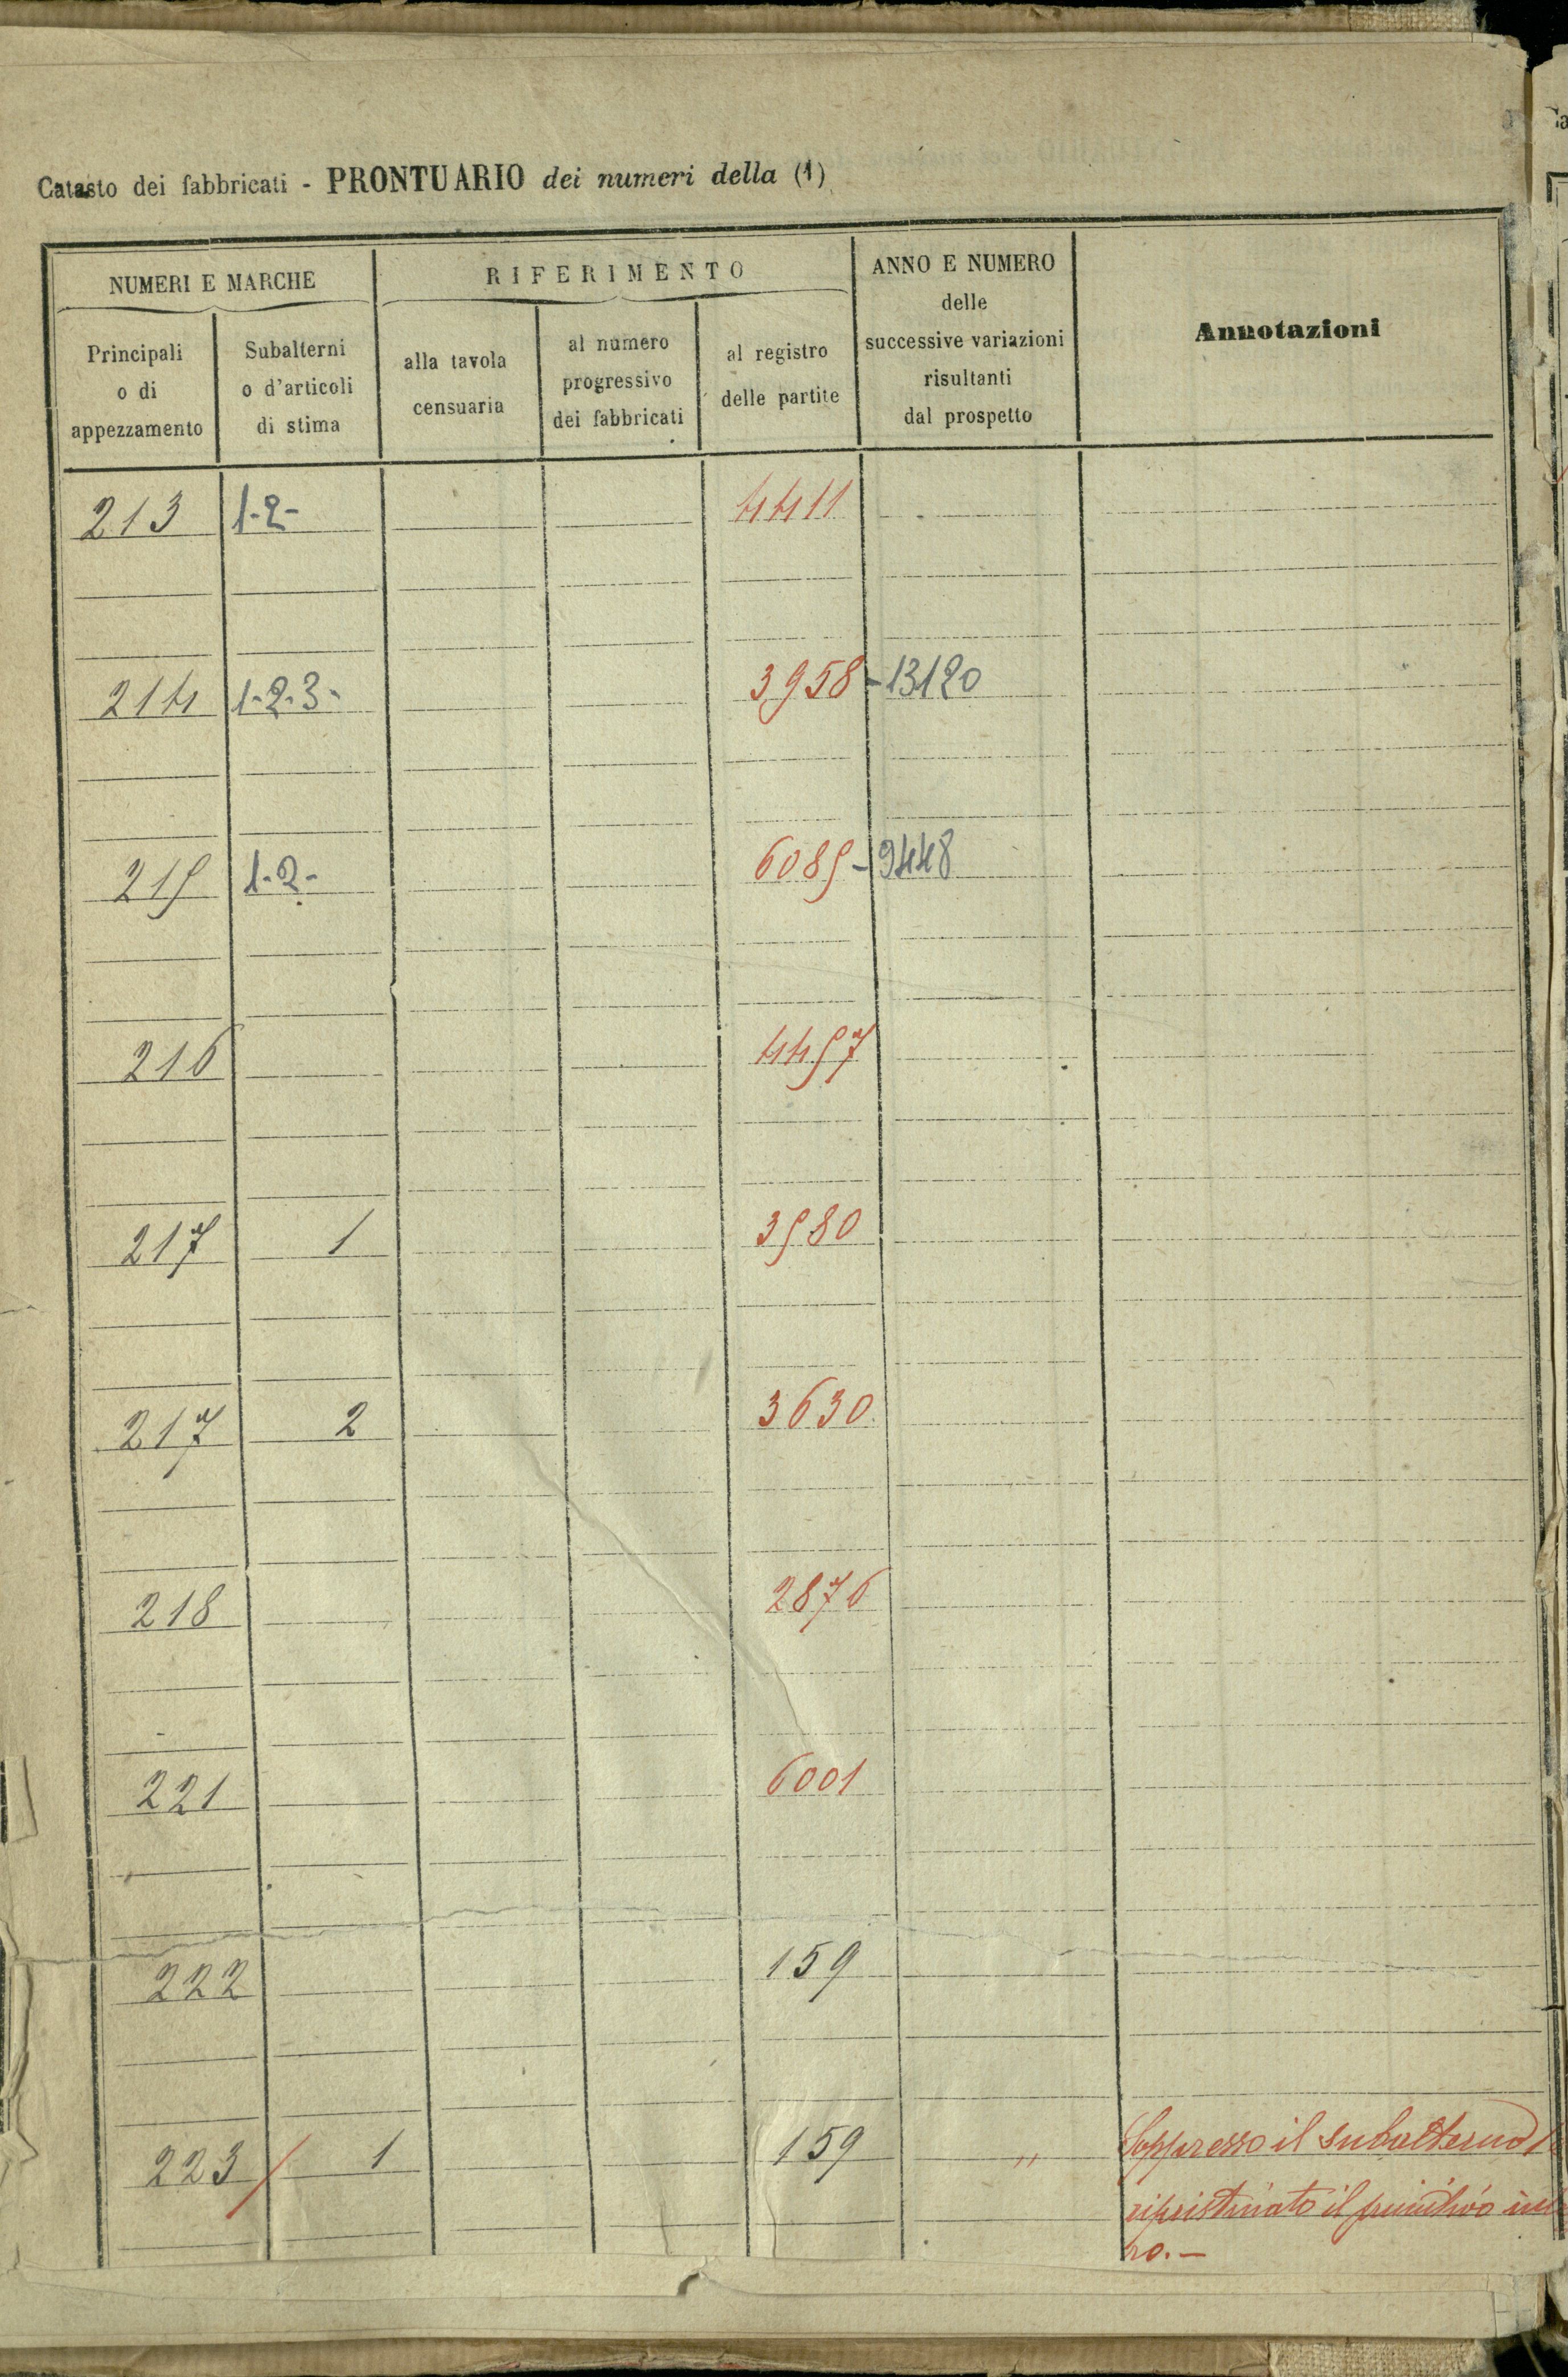 Catasto dei fabbricati - PRONTUARIO dei numeri della (1)
NUMERI E MARCHE
RIFERIMENTO
ANNO E NUMERO
delle
successive variazioni
risultanti
dal prospetto
Annotazioni
Principali
o di
appezzamento
Subalterni
o d'articoli
di stima
alla tavola
censuaria
al numero
progressivo
dei fabbricati
al registro
delle partite
213 1-2- 4411
214 1-2-3- 3958 - 13120
215 1-2- 6085 - 9448
216 4457
217 1 3580
217 2 3630
218 2876
221 6001
222 159
223 / 1 159 "
Soppresso il subalterno 1
ripristinato il primitivo
ro. -